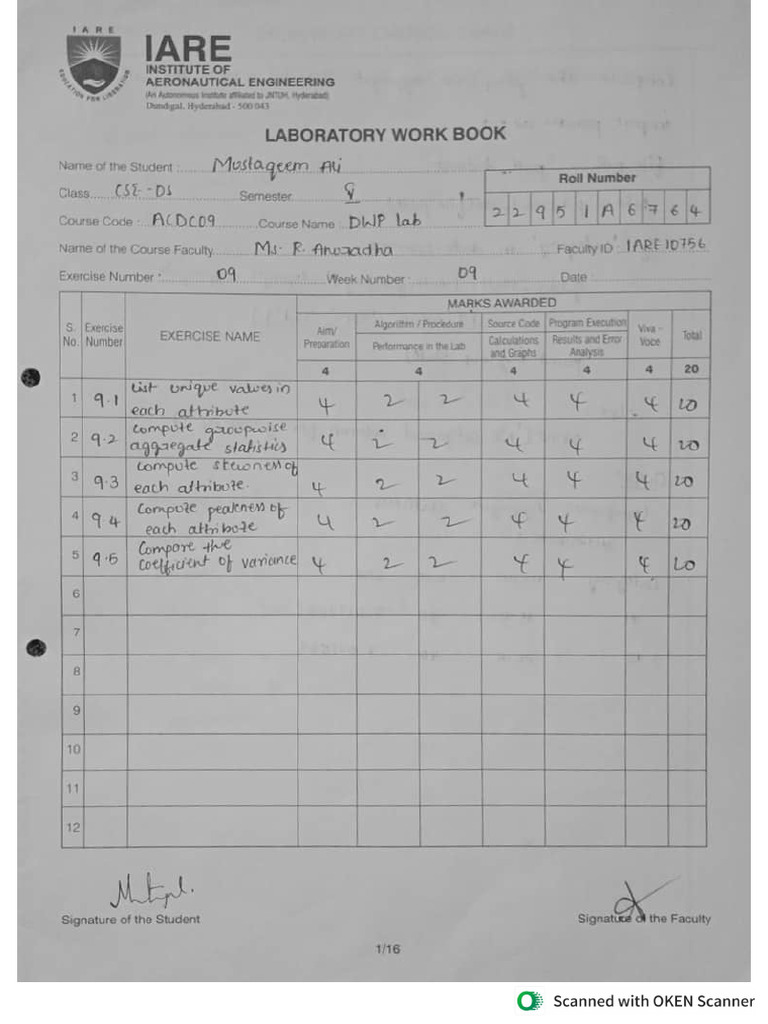 IARE
EDUCATION FOR LIBERATION
IARE
INSTITUTE OF
AERONAUTICAL ENGINEERING
(An Autonomous Institute affiliated to JNTUH, Hyderabad)
Dundigal, Hyderabad - 500 043
LABORATORY WORK BOOK
Name of the Student : Mustaqeem Ali
Class CSE-DS Semester
Roll Number
22951A6764
Course Code : ACDC09 Course Name DWP lab
Name of the Course Faculty Ms. R. Anuradha Faculty ID : IARE 10756
Exercise Number : 09 Week Number : 09 Date :
S. No. Exercise Number EXERCISE NAME MARKS AWARDED
Aim/ Preparation Algorithm / Procedure Source Code Program Execution Viva - Voce Total
Performance in the Lab Calculations and Graphs Results and Error Analysis
4 4 4 4 4 20
1 9.1 List unique values in each attribute 4 2 2 4 4 4 20
2 9.2 compute groupwise aggregate statistics 4 2 2 4 4 4 20
3 9.3 compute skewness of each attribute. 4 2 2 4 4 4 20
4 9.4 Compute peakness of each attribute 4 2 2 4 4 4 20
5 9.5 Compare the coefficient of variance 4 2 2 4 4 4 20
6
7
8
9
10
11
12
Signature of the Student Signature of the Faculty
1/16
Scanned with OKEN Scanner